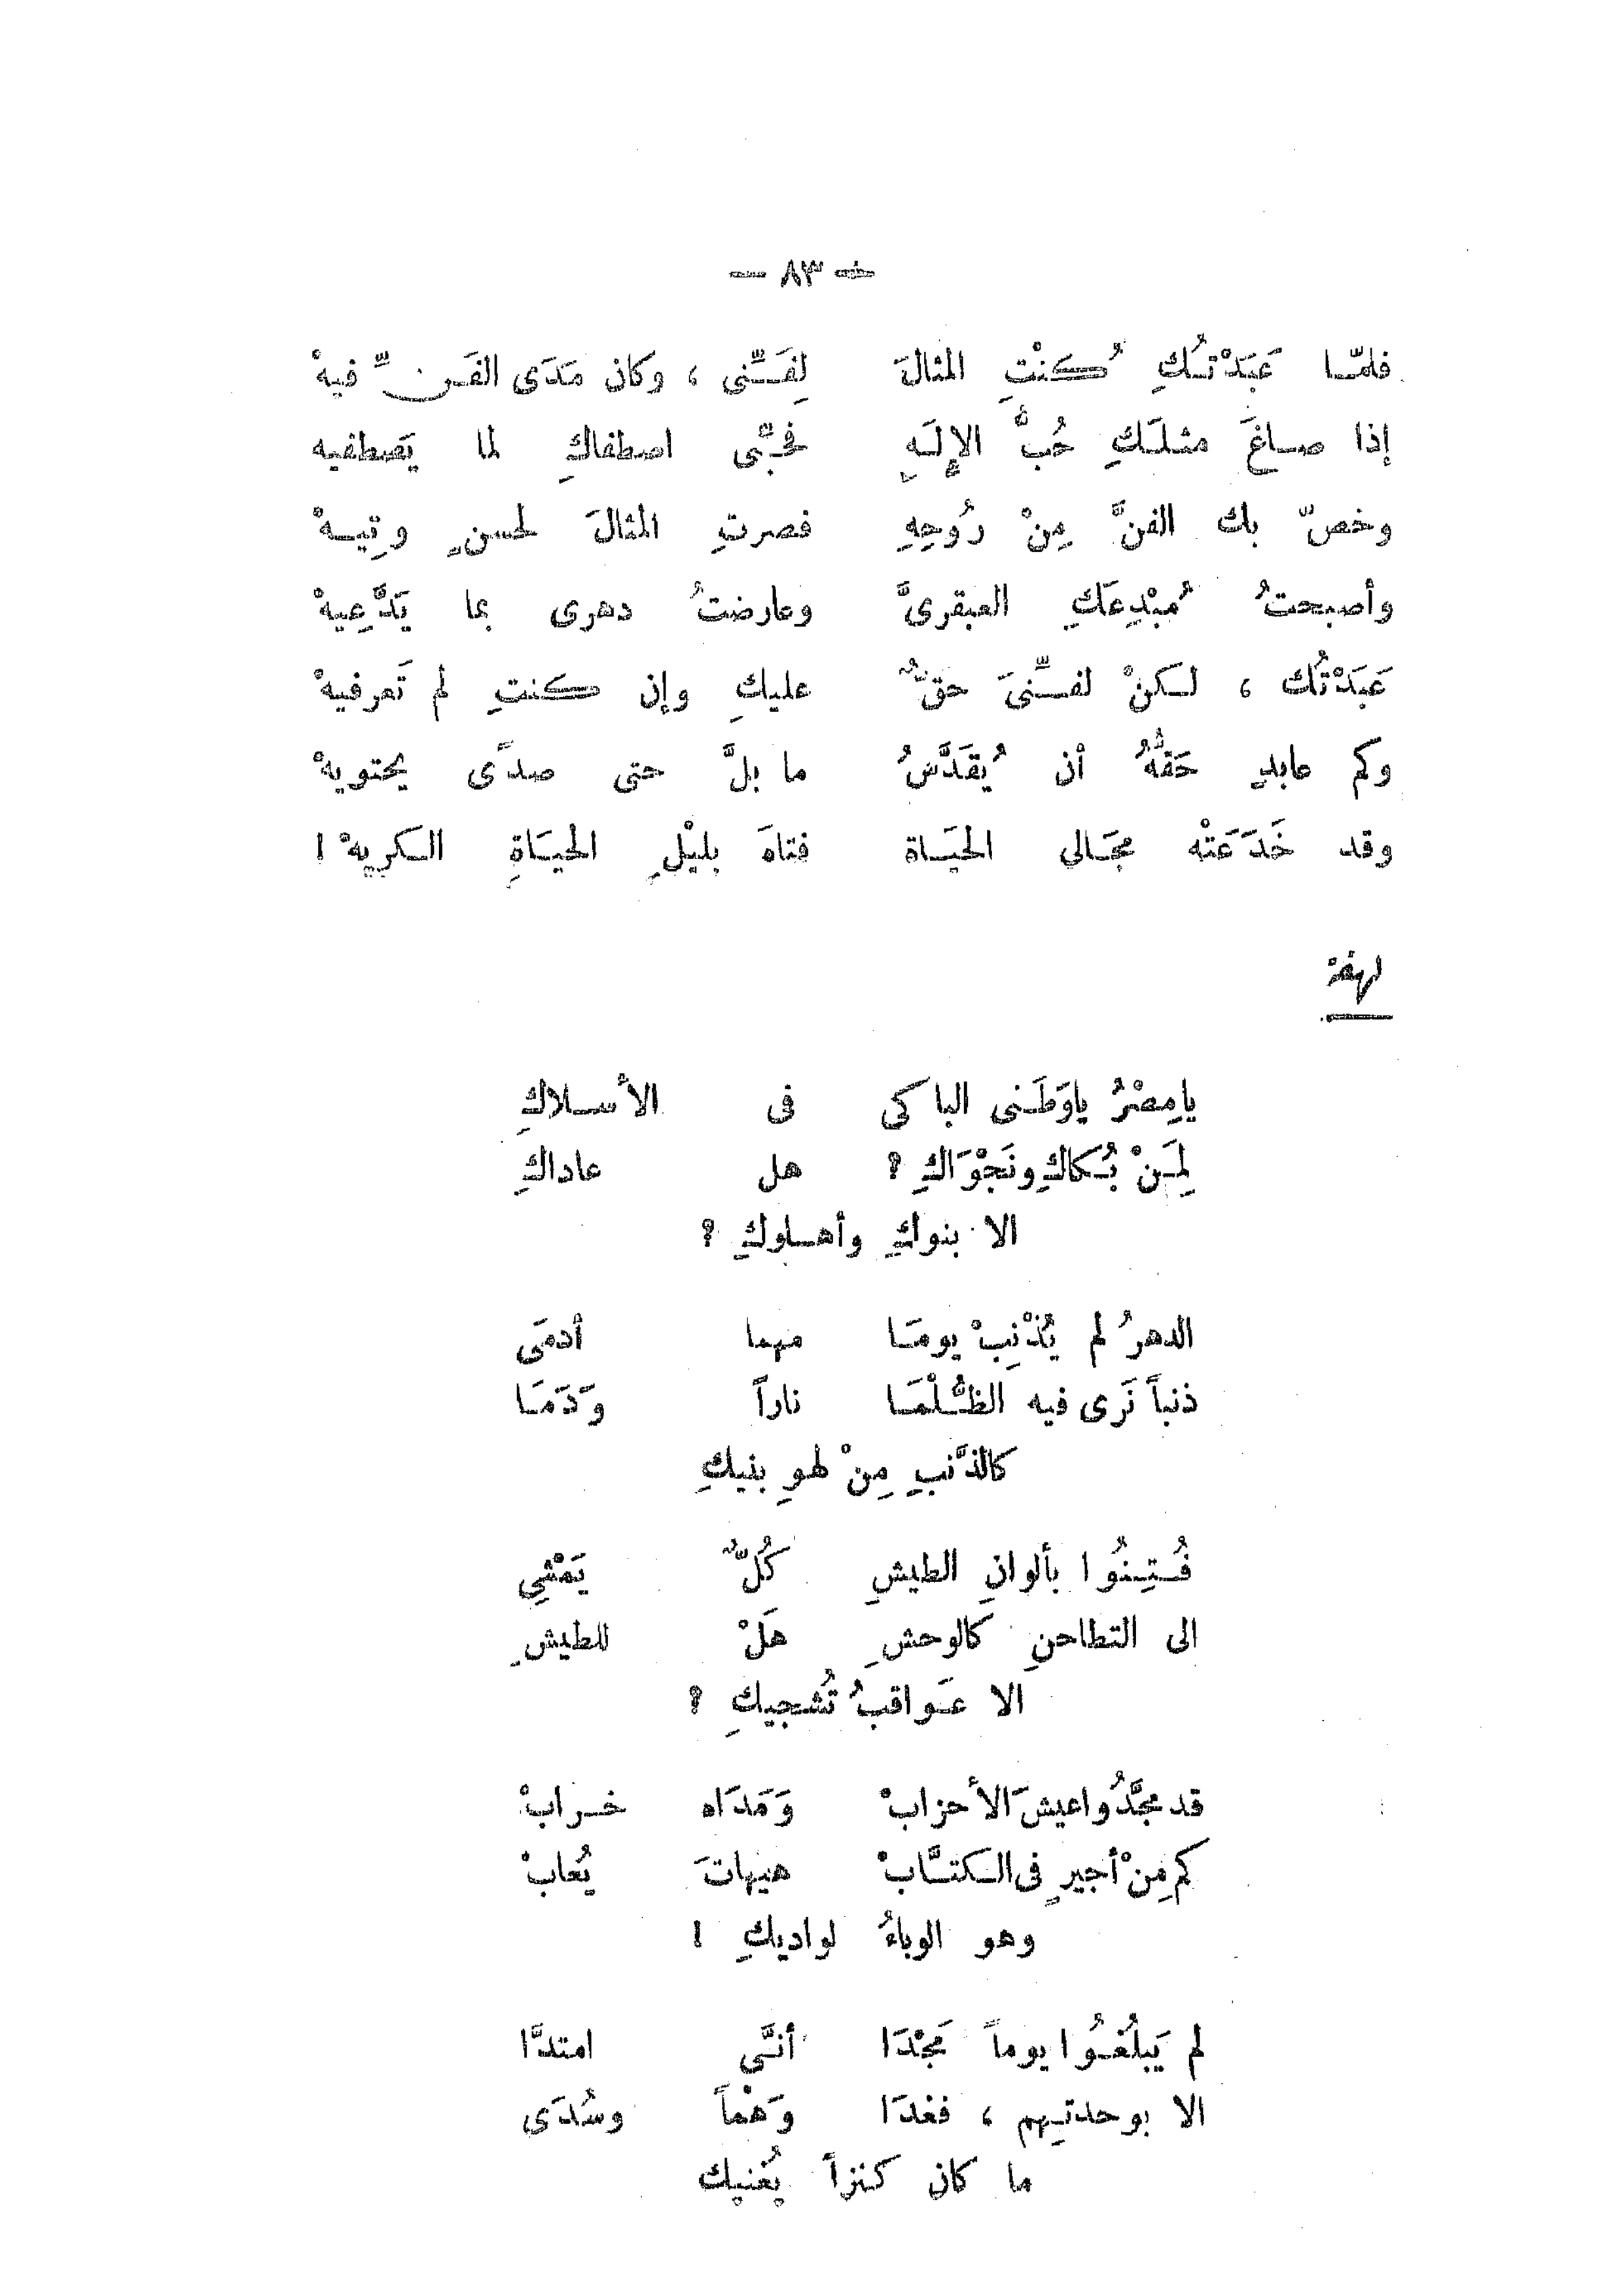 — ٨٣ —
فلمّا عَبَدْتُكِ كُنْتِ المثالَ لِفَنِّى ، وكان مَدَى الفَنِّ فيهْ
إذا صاغَ مثلَكِ حُبُّ الإِلَهِ فحبِّى اصطفاكِ لما يَصطفيه
وخصّ بك الفنَّ مِنْ رُوحِهِ فصرتِ المثالَ لحسنٍ وتِيهْ
وأصبحتُ مُبْدِعَكِ العبقرىَّ وعارضتُ دهرى بما يَدَّعِيهْ
عَبَدْتُك ، لكنْ لفنِّىَ حقٌّ عليكِ وإن كنتِ لم تَعرفيهْ
وكم عابدٍ حَقُّهُ أن يُقَدَّسُ ما بلَّ حتى صدًى يحتويهْ
وقد خَدَعَتْه مجَالى الحيَاة فتاهَ بليْلِ الحيَاةِ الكريهْ !
لهفة
يامِصْرُ ياوَطَنى الباكى فى الأسلاكِ
لِمَنْ بُكاكِ ونَجْوَاكِ ؟ هل عاداكِ
الا بنوكِ وأهلوكِ ؟
الدهرُ لم يُذْنِبْ يومَا مهما أدمَى
ذنباً نَرى فيه الظُّلْمَا ناراً وَدَمَا
كالذَّنبِ مِنْ لهوِ بنيكِ
فُتِنُوا بألوانِ الطيشِ كُلٌّ يَمْشِي
الى التطاحنِ كالوحشِ هَلْ للطيشِ
الا عَواقبُ تُشجيكِ ؟
قد مجَّدُوا عيشَ الأحزابْ وَمَدَاه خرابْ
كم مِنْ أجيرٍ فى الكتَّابْ هيهاتَ يُعابْ
وهو الوباءُ لواديكِ !
لم يَبلُغُوا يوماً مَجْدَا أنَّي امتدَّا
الا بوحدتِهم ، فغدَا وَهْماً وسُدَى
ما كان كنزاً يُغنيك